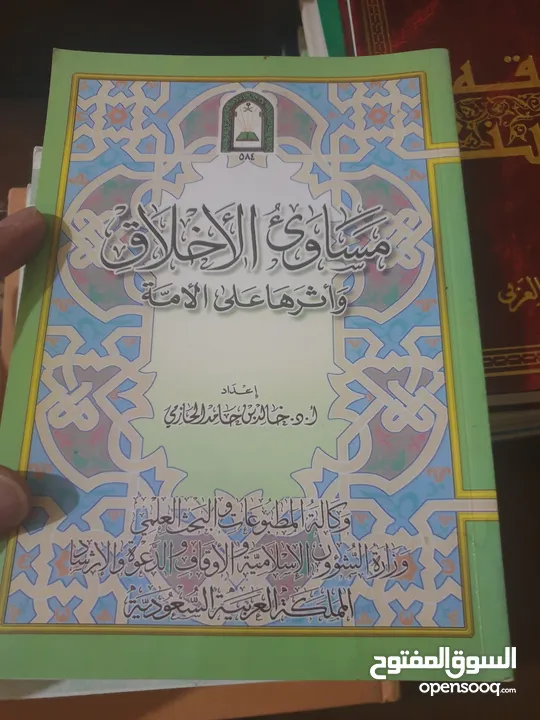 ٥٨٤
مَسَاوِئُ الأَخْلَاقِ
وَأَثَرُهَا عَلَى الأُمَّة
إعْدَاد
أ.د. خالد بن حامد الحازمي
وكالة المطبوعات والبحث العلمي
وزارة الشؤون الإسلامية والأوقاف والدعوة والإرشاد
المملكة العربية السعودية
العزبي
السوق المفتوح
opensooq.com